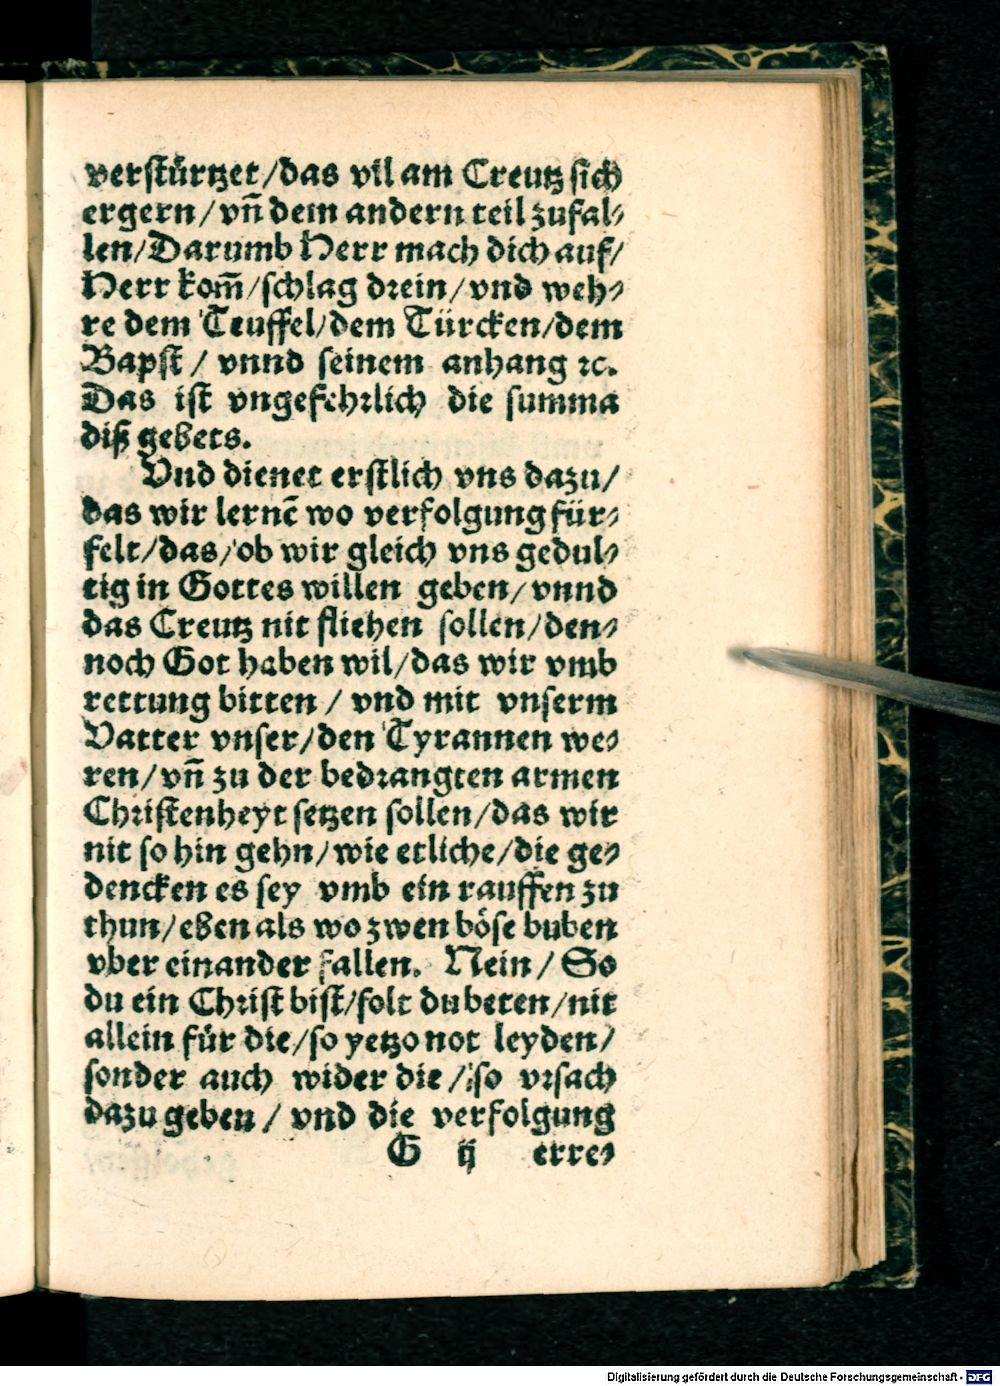 verstürtzet/das vil am Creutz sich
ergern/vñ dem andern teil zufal⸗
len/Darumb Herr mach dich auf/
Herr kom̃/schlag drein/vnd weh⸗
re dem Teuffel/dem Türcken/dem
Bapst/ vnnd seinem anhang ꝛc.
Das ist vngefehrlich die summa
diß gebets.
Vnd dienet erstlich vns dazu/
das wir lernẽ wo verfolgung für⸗
felt/das/ob wir gleich vns gedul⸗
tig in Gottes willen geben/vnnd
das Creutz nit fliehen sollen/den⸗
noch Got haben wil/das wir vmb
rettung bitten/ vnd mit vnserm
Vatter vnser/den Tyrannen we⸗
ren/vñ zu der bedrangten armen
Christenheyt setzen sollen/das wir
nit so hin gehn/wie etliche/die ge⸗
dencken es sey vmb ein rauffen zu
thun/eben als wo zwen böse buben
vber einander fallen. Nein/ So
du ein Christ bist/solt du beten/nit
allein für die/so yetzo not leyden/
sonder auch wider die/ so vrsach
dazu geben/ vnd die verfolgung
G ij erre⸗
Digitalisierung gefördert durch die Deutsche Forschungsgemeinschaft - DFG